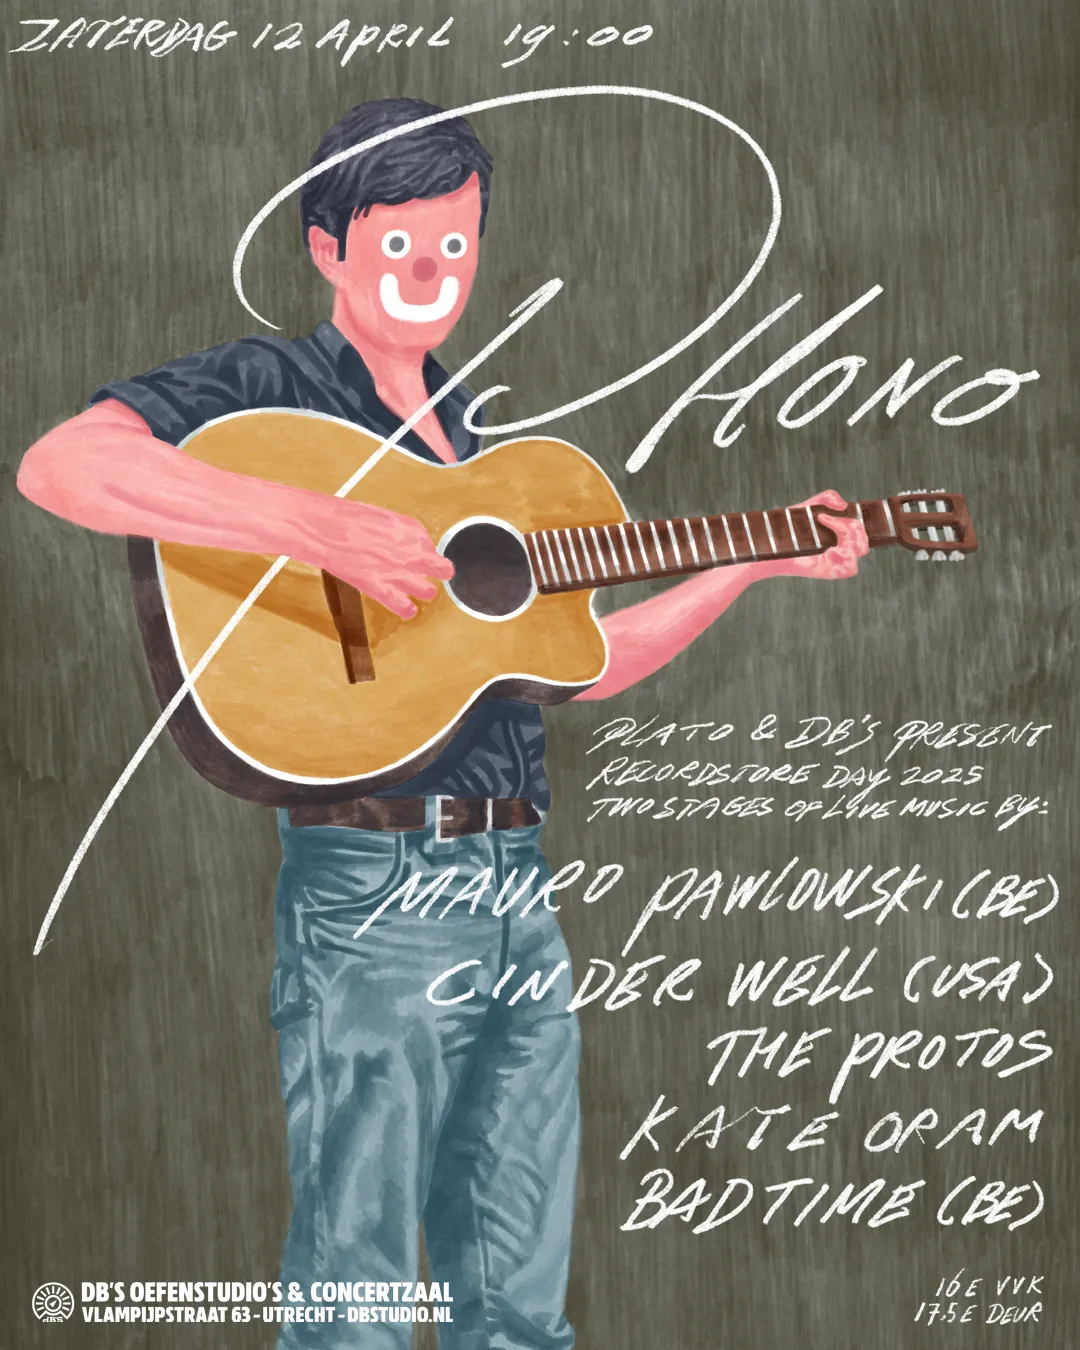 ZATERDAG 12 APRIL 19:00
PHONO
PLATO & DB'S PRESENT
RECORDSTORE DAY 2025
TWO STAGES OF LIVE MUSIC BY:
MAURO PAWLOWSKI (BE)
CINDER WELL (USA)
THE PROTOS
KATE ORAM
BAD TIME (BE)
16E VVK
17,5E DEUR
DB'S OEFENSTUDIO'S & CONCERTZAAL
VLAMPIJPSTRAAT 63 - UTRECHT - DBSTUDIO.NL
DB'S